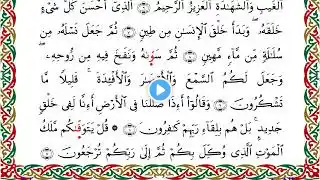 الْغَيْبِ وَالشَّهَٰدَةِ الْعَزِيزُ الرَّحِيمُ ۝ الَّذِي أَحْسَنَ كُلَّ شَيْءٍ
خَلَقَهُۥ ۖ وَبَدَأَ خَلْقَ الْإِنسَٰنِ مِن طِينٍ ۝ ثُمَّ جَعَلَ نَسْلَهُۥ مِن
سُلَٰلَةٍ مِّن مَّآءٍ مَّهِينٍ ۝ ثُمَّ سَوَّىٰهُ وَنَفَخَ فِيهِ مِن رُّوحِهِۦ ۖ
وَجَعَلَ لَكُمُ السَّمْعَ وَالْأَبْصَٰرَ وَالْأَفْـِٔدَةَ ۚ قَلِيلًا مَّا
تَشْكُرُونَ ۝ وَقَالُوٓا۟ أَءِذَا ضَلَلْنَا فِي الْأَرْضِ أَءِنَّا لَفِي خَلْقٍ
جَدِيدٍۭ ۚ بَلْ هُم بِلِقَآءِ رَبِّهِمْ كَٰفِرُونَ ۝ قُلْ يَتَوَفَّىٰكُم مَّلَكُ
الْمَوْتِ الَّذِي وُكِّلَ بِكُمْ ثُمَّ إِلَىٰ رَبِّكُمْ تُرْجَعُونَ ۝